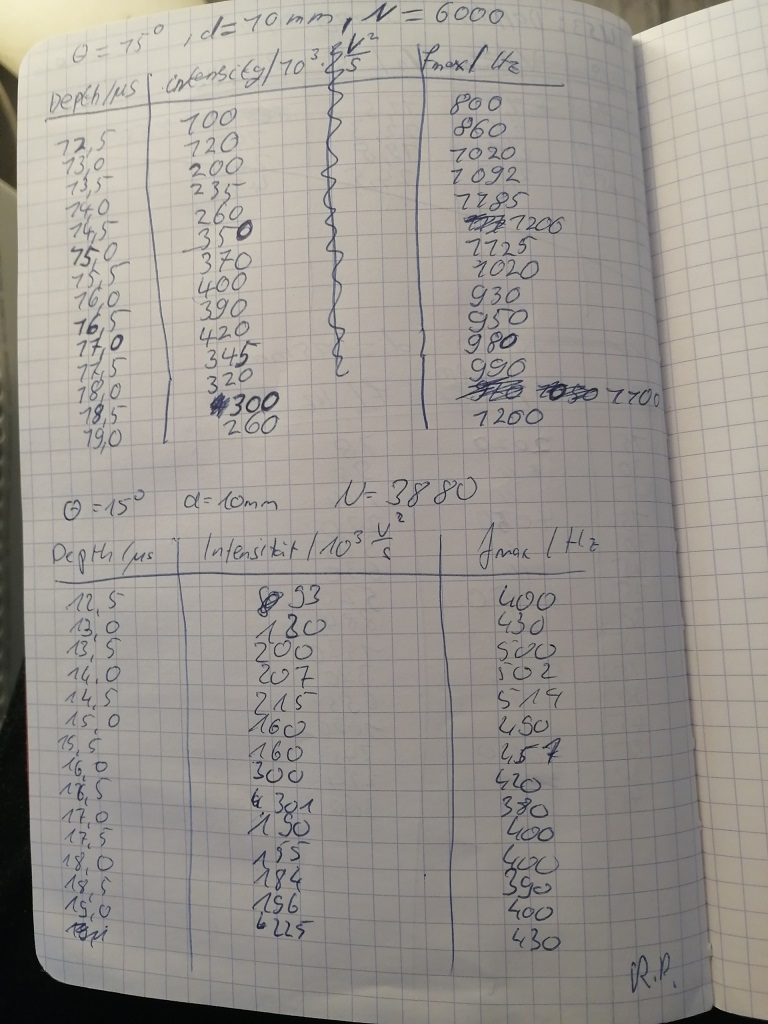 θ = 15°, d = 10 mm, N = 6000
Depth/µs intensity/10³ · V²/s fmax / Hz
12,5 100 800
13,0 120 860
13,5 200 1020
14,0 235 1092
14,5 260 1185
15,0 350 1206
15,5 370 1125
16,0 400 1020
16,5 390 930
17,0 420 950
17,5 345 980
18,0 320 990
18,5 300 1100
19,0 260 1200
θ = 15° d = 10mm N = 3880
Depth/µs Intensität/10³ V²/s fmax / Hz
12,5 93 400
13,0 130 430
13,5 200 500
14,0 207 502
14,5 215 514
15,0 160 490
15,5 160 457
16,0 300 420
16,5 301 380
17,0 190 400
17,5 155 400
18,0 184 390
18,5 196 400
19,0 225 430
R.P.